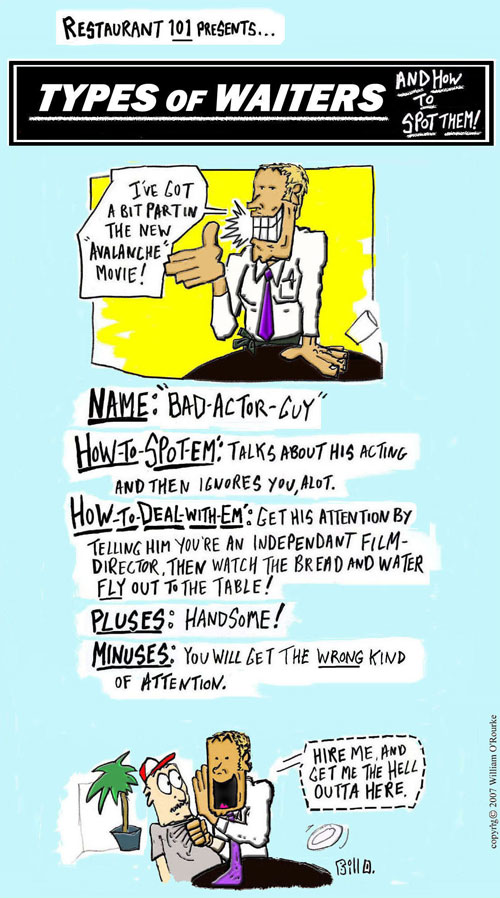 RESTAURANT 101 PRESENTS...
TYPES OF WAITERS
AND HOW
TO
SPOT THEM!
I'VE GOT
A BIT PART IN
THE NEW
"AVALANCHE"
MOVIE!
NAME: "BAD-ACTOR-GUY"
HOW-TO-SPOT-EM': TALKS ABOUT HIS ACTING
AND THEN IGNORES YOU, ALOT.
HOW-TO-DEAL-WITH-EM': GET HIS ATTENTION BY
TELLING HIM YOU'RE AN INDEPENDANT FILM-
DIRECTOR, THEN WATCH THE BREAD AND WATER
FLY OUT TO THE TABLE!
PLUSES: HANDSOME!
MINUSES: YOU WILL GET THE WRONG KIND
OF ATTENTION.
HIRE ME, AND
GET ME THE HELL
OUTTA HERE.
Bill O.
copyrtg© 2007 William O'Rourke